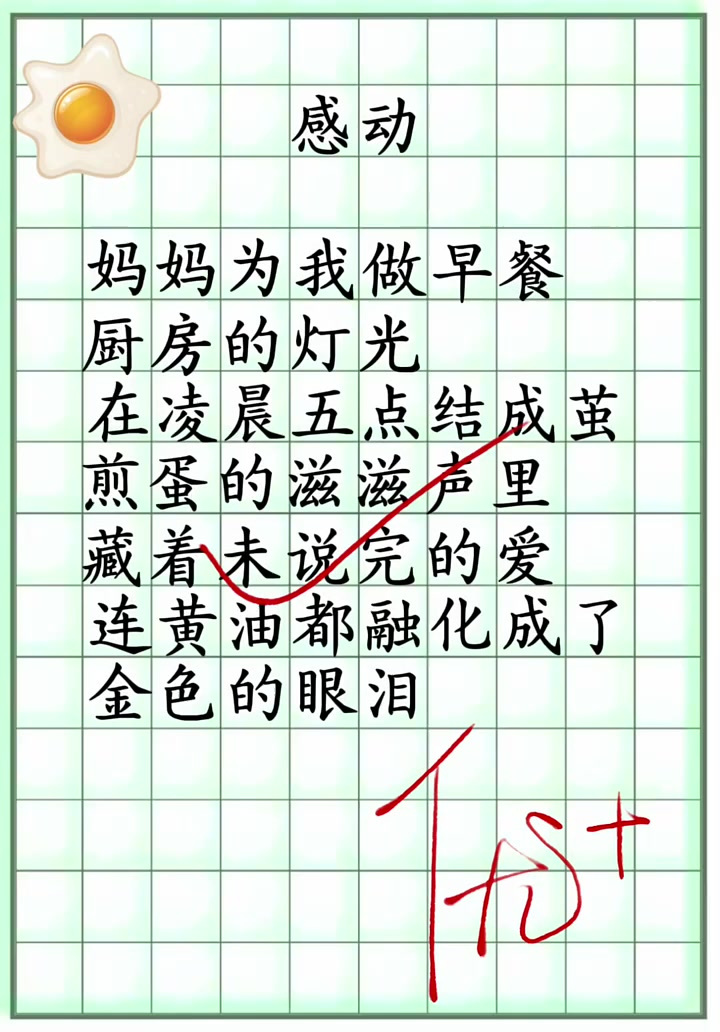 感动
妈妈为我做早餐
厨房的灯光
在凌晨五点结成茧
煎蛋的滋滋声里
藏着未说完的爱
连黄油都融化成了
金色的眼泪
优+